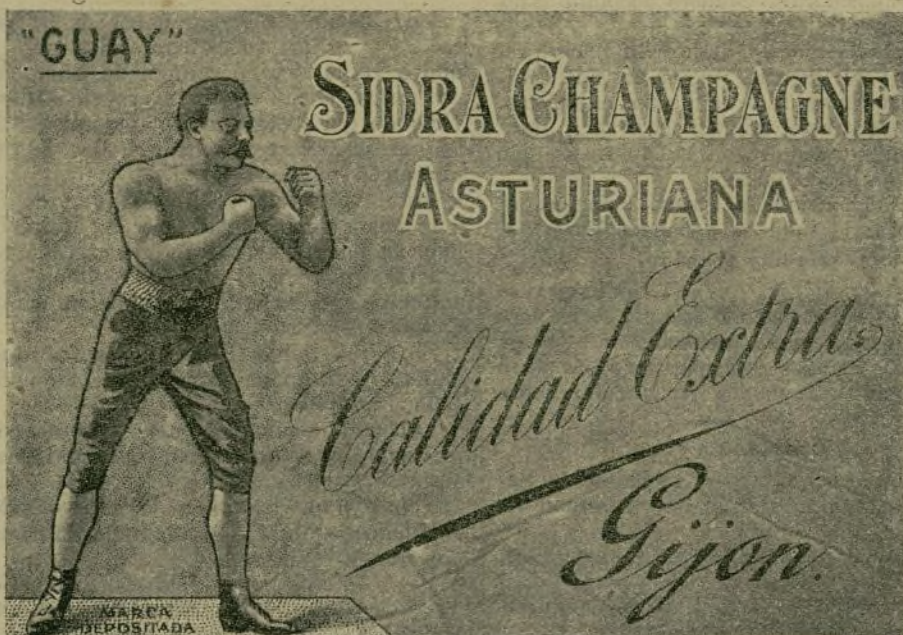 "GUAY"
SIDRA CHAMPAGNE
ASTURIANA
Calidad Extra.
Gijon.
MARCA
DEPOSITADA